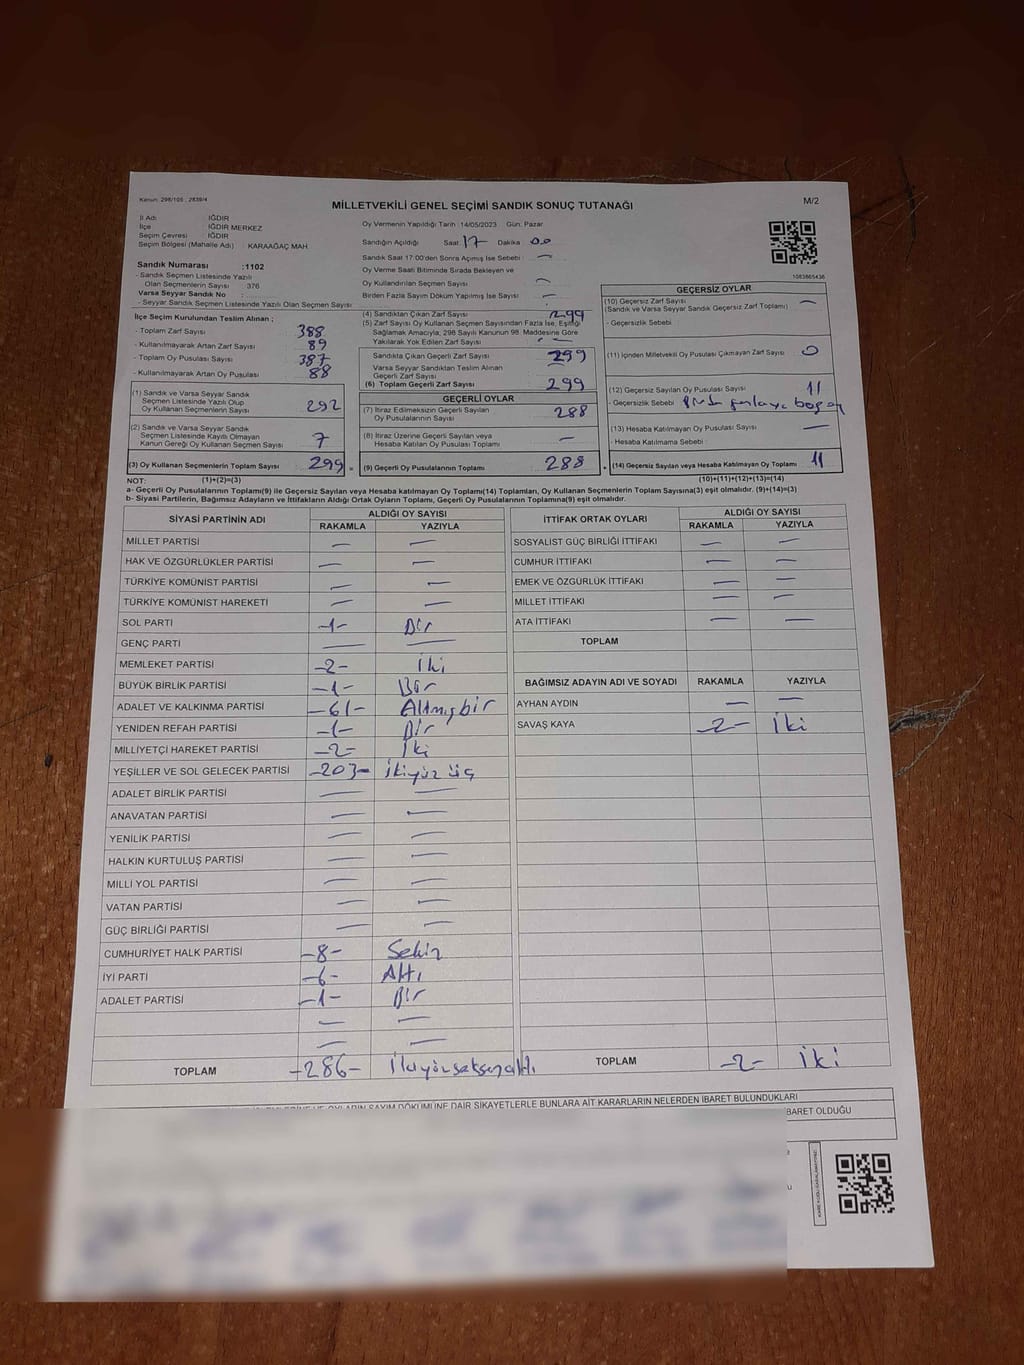 Kanun: 298/105 : 2839/4
M/2
MİLLETVEKİLİ GENEL SEÇİMİ SANDIK SONUÇ TUTANAĞI
İl Adı IĞDIR
İlçe IĞDIR MERKEZ
Seçim Çevresi : IĞDIR
Seçim Bölgesi (Mahalle Adı) : KARAAĞAÇ MAH
Sandık Numarası :1102
- Sandık Seçmen Listesinde Yazılı
Olan Seçmenlerin Sayısı : 376
Varsa Seyyar Sandık No :
- Seyyar Sandık Seçmen Listesinde Yazılı Olan Seçmen Sayısı
İlçe Seçim Kurulundan Teslim Alınan ;
- Toplam Zarf Sayısı : 388
- Kullanılmayarak Artan Zarf Sayısı : 89
- Toplam Oy Pusulası Sayısı : 387
- Kullanılmayarak Artan Oy Pusulası : 88
(1) Sandık ve Varsa Seyyar Sandık
Seçmen Listesinde Yazılı Olup
Oy Kullanan Seçmenlerin Sayısı : 292
(2) Sandık ve Varsa Seyyar Sandık
Seçmen Listesinde Kayıtlı Olmayan
Kanun Gereği Oy Kullanan Seçmen Sayısı : 7
(3) Oy Kullanan Seçmenlerin Toplam Sayısı : 299 =
Oy Vermenin Yapıldığı Tarih : 14/05/2023 Gün: Pazar
Sandığın Açıldığı Saat : 17 Dakika : 00
Sandık Saat 17:00'den Sonra Açımış İse Sebebi : —
Oy Verme Saati Bitiminde Sırada Bekleyen ve
Oy Kullandırılan Seçmen Sayısı : —
Birden Fazla Sayım Döküm Yapılmış İse Sayısı : —
(4) Sandıktan Çıkan Zarf Sayısı : 299
(5) Zarf Sayısı Oy Kullanan Seçmen Sayısından Fazla İse, Eşitliği
Sağlamak Amacıyla, 298 Sayılı Kanunun 98. Maddesine Göre
Yakılarak Yok Edilen Zarf Sayısı :
Sandıkta Çıkan Geçerli Zarf Sayısı : 299
Varsa Seyyar Sandıktan Teslim Alınan
Geçerli Zarf Sayısı
(6) Toplam Geçerli Zarf Sayısı : 299
GEÇERLİ OYLAR
(7) İtiraz Edilmeksizin Geçerli Sayılan
Oy Pusulalarının Sayısı : 288
(8) İtiraz Üzerine Geçerli Sayılan veya
Hesaba Katılan Oy Pusulası Toplamı : —
(9) Geçerli Oy Pusulalarının Toplamı : 288 +
1083865436
GEÇERSİZ OYLAR
(10) Geçersiz Zarf Sayısı : —
(Sandık ve Varsa Seyyar Sandık Geçersiz Zarf Toplamı)
- Geçersizlik Sebebi :
(11) İçinden Milletvekili Oy Pusulası Çıkmayan Zarf Sayısı : 0
(12) Geçersiz Sayılan Oy Pusulası Sayısı : 11
- Geçersizlik Sebebi :
(13) Hesaba Katılmayan Oy Pusulası Sayısı : —
- Hesaba Katılmama Sebebi :
(14) Geçersiz Sayılan veya Hesaba Katılmayan Oy Toplamı : 11
NOT: (1)+(2)=(3) (10)+(11)+(12)+(13)=(14)
a- Geçerli Oy Pusulalarının Toplamı(9) ile Geçersiz Sayılan veya Hesaba katılmayan Oy Toplam(14) Toplamları, Oy Kullanan Seçmenlerin Toplam Sayısına(3) eşit olmalıdır. (9)+(14)=(3)
b- Siyasi Partilerin, Bağımsız Adayların ve İttifakların Aldığı Oy Sayısı Ortak Oyların Toplamı, Geçerli Oy Pusulalarının Toplamına(9) eşit olmalıdır.
SİYASİ PARTİNİN ADI ALDIĞI OY SAYISI
RAKAMLA YAZIYLA
MİLLET PARTİSİ — —
HAK VE ÖZGÜRLÜKLER PARTİSİ — —
TÜRKİYE KOMÜNİST PARTİSİ — —
TÜRKİYE KOMÜNİST HAREKETİ — —
SOL PARTİ -1- Bir
GENÇ PARTİ — —
MEMLEKET PARTİSİ -2- İki
BÜYÜK BİRLİK PARTİSİ -1- Bir
ADALET VE KALKINMA PARTİSİ -61- Altmışbir
YENİDEN REFAH PARTİSİ -1- Bir
MİLLİYETÇİ HAREKET PARTİSİ -2- İki
YEŞİLLER VE SOL GELECEK PARTİSİ -203- İkiyüz üç
ADALET BİRLİK PARTİSİ — —
ANAVATAN PARTİSİ — —
YENİLİK PARTİSİ — —
HALKIN KURTULUŞ PARTİSİ — —
MİLLİ YOL PARTİSİ — —
VATAN PARTİSİ — —
GÜÇ BİRLİĞİ PARTİSİ — —
CUMHURİYET HALK PARTİSİ -8- Sekiz
İYİ PARTİ -6- Altı
ADALET PARTİSİ -1- Bir
— —
— —
TOPLAM -286- İkiyüzseksenaltı
İTTİFAK ORTAK OYLARI ALDIĞI OY SAYISI
RAKAMLA YAZIYLA
SOSYALİST GÜÇ BİRLİĞİ İTTİFAKI — —
CUMHUR İTTİFAKI — —
EMEK VE ÖZGÜRLÜK İTTİFAKI — —
MİLLET İTTİFAKI — —
ATA İTTİFAKI — —
TOPLAM
BAĞIMSIZ ADAYIN ADI VE SOYADI RAKAMLA YAZIYLA
AYHAN AYDIN — —
SAVAŞ KAYA -2- İki
TOPLAM -2- İki
OYLARIN SAYIM DÖKÜMÜNE DAİR ŞİKAYETLERLE BUNLARA AİT KARARLARIN NELERDEN İBARET BULUNDUKLARI
İBARET OLDUĞU